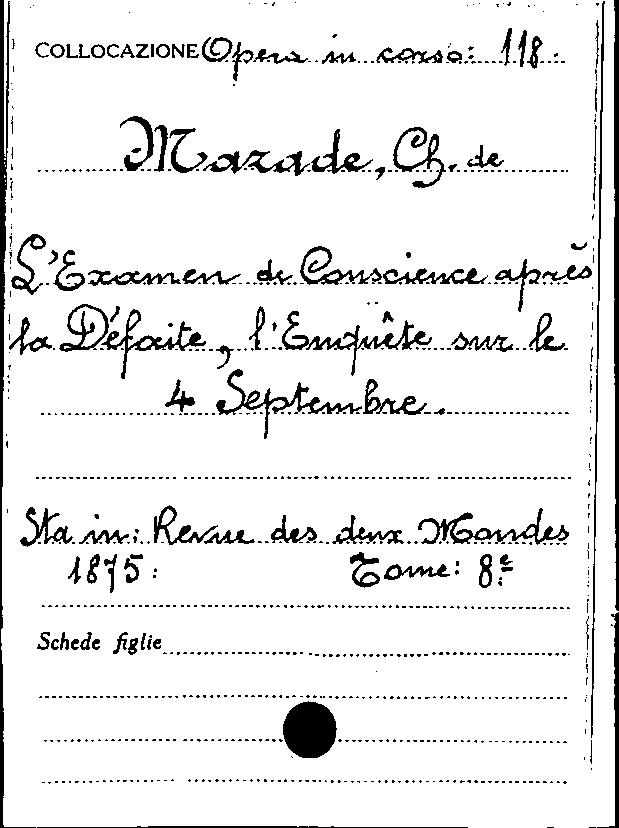 COLLOCAZIONE Opera in corso: 118.
Mazade, Ch. de
L'Examen de Conscience après
la Défaite, l'Enquête sur le
4 Septembre.
Sta in: Revue des deux Mondes
1875: Tome: 8e
Schede figlie